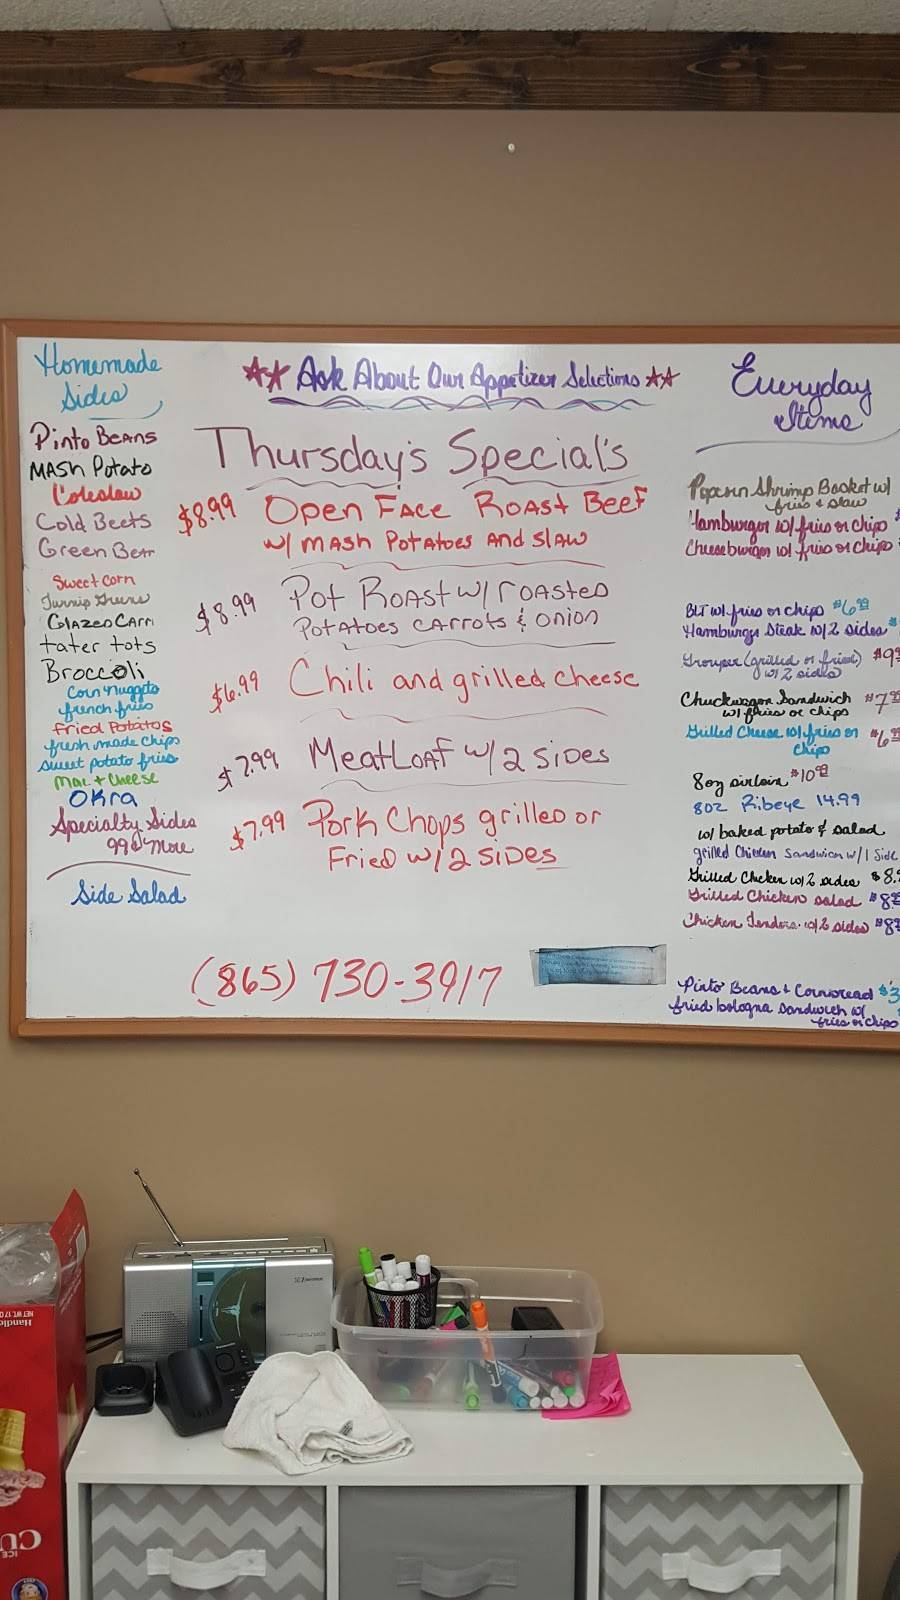 Homemade
Sides
Pinto Beans
Mash Potato
Coleslaw
Cold Beets
Green Bean
Sweet corn
Turnip Greens
Glazed Carr
tater tots
Broccoli
Corn Nuggets
french fries
Fried Potatos
fresh made chips
sweet potato fries
Mac + Cheese
Okra
Specialty Sides
99¢ More
Side Salad
** Ask About Our Appetizer Selections **
Thursday's Special's
$8.99 Open Face Roast Beef
w/ mash Potatoes and Slaw
$8.99 Pot Roast w/ roasted
Potatoes carrots & onion
$6.99 Chili and grilled cheese
$7.99 Meatloaf w/ 2 sides
$7.99 Pork Chops grilled or
Fried w/ 2 sides
(865) 730-3917
Everyday
Items
Popcorn Shrimp Basket w/
fries & slaw
Hamburger w/ fries or chips
Cheeseburger w/ fries or chips
BLT w/ fries or chips $6.99
Hamburger Steak w/ 2 sides $
Grouper (grilled or fried) $9
w/ 2 sides
Chuckwagon Sandwich $7
w/ fries or chips
Grilled Cheese w/ fries or $6
chips
8oz sirloin $10.99
8oz Ribeye 14.99
w/ baked potato & salad
grilled Chicken Sandwich w/ 1 Side
Grilled Chicken w/ 2 sides $8.
Grilled Chicken salad $8
Chicken Tenders w/ 2 sides $8
Pinto Beans & Cornbread $3
fried bologna sandwich w/
fries or chips
Handle
NET WT. 17.0
CU
ICE